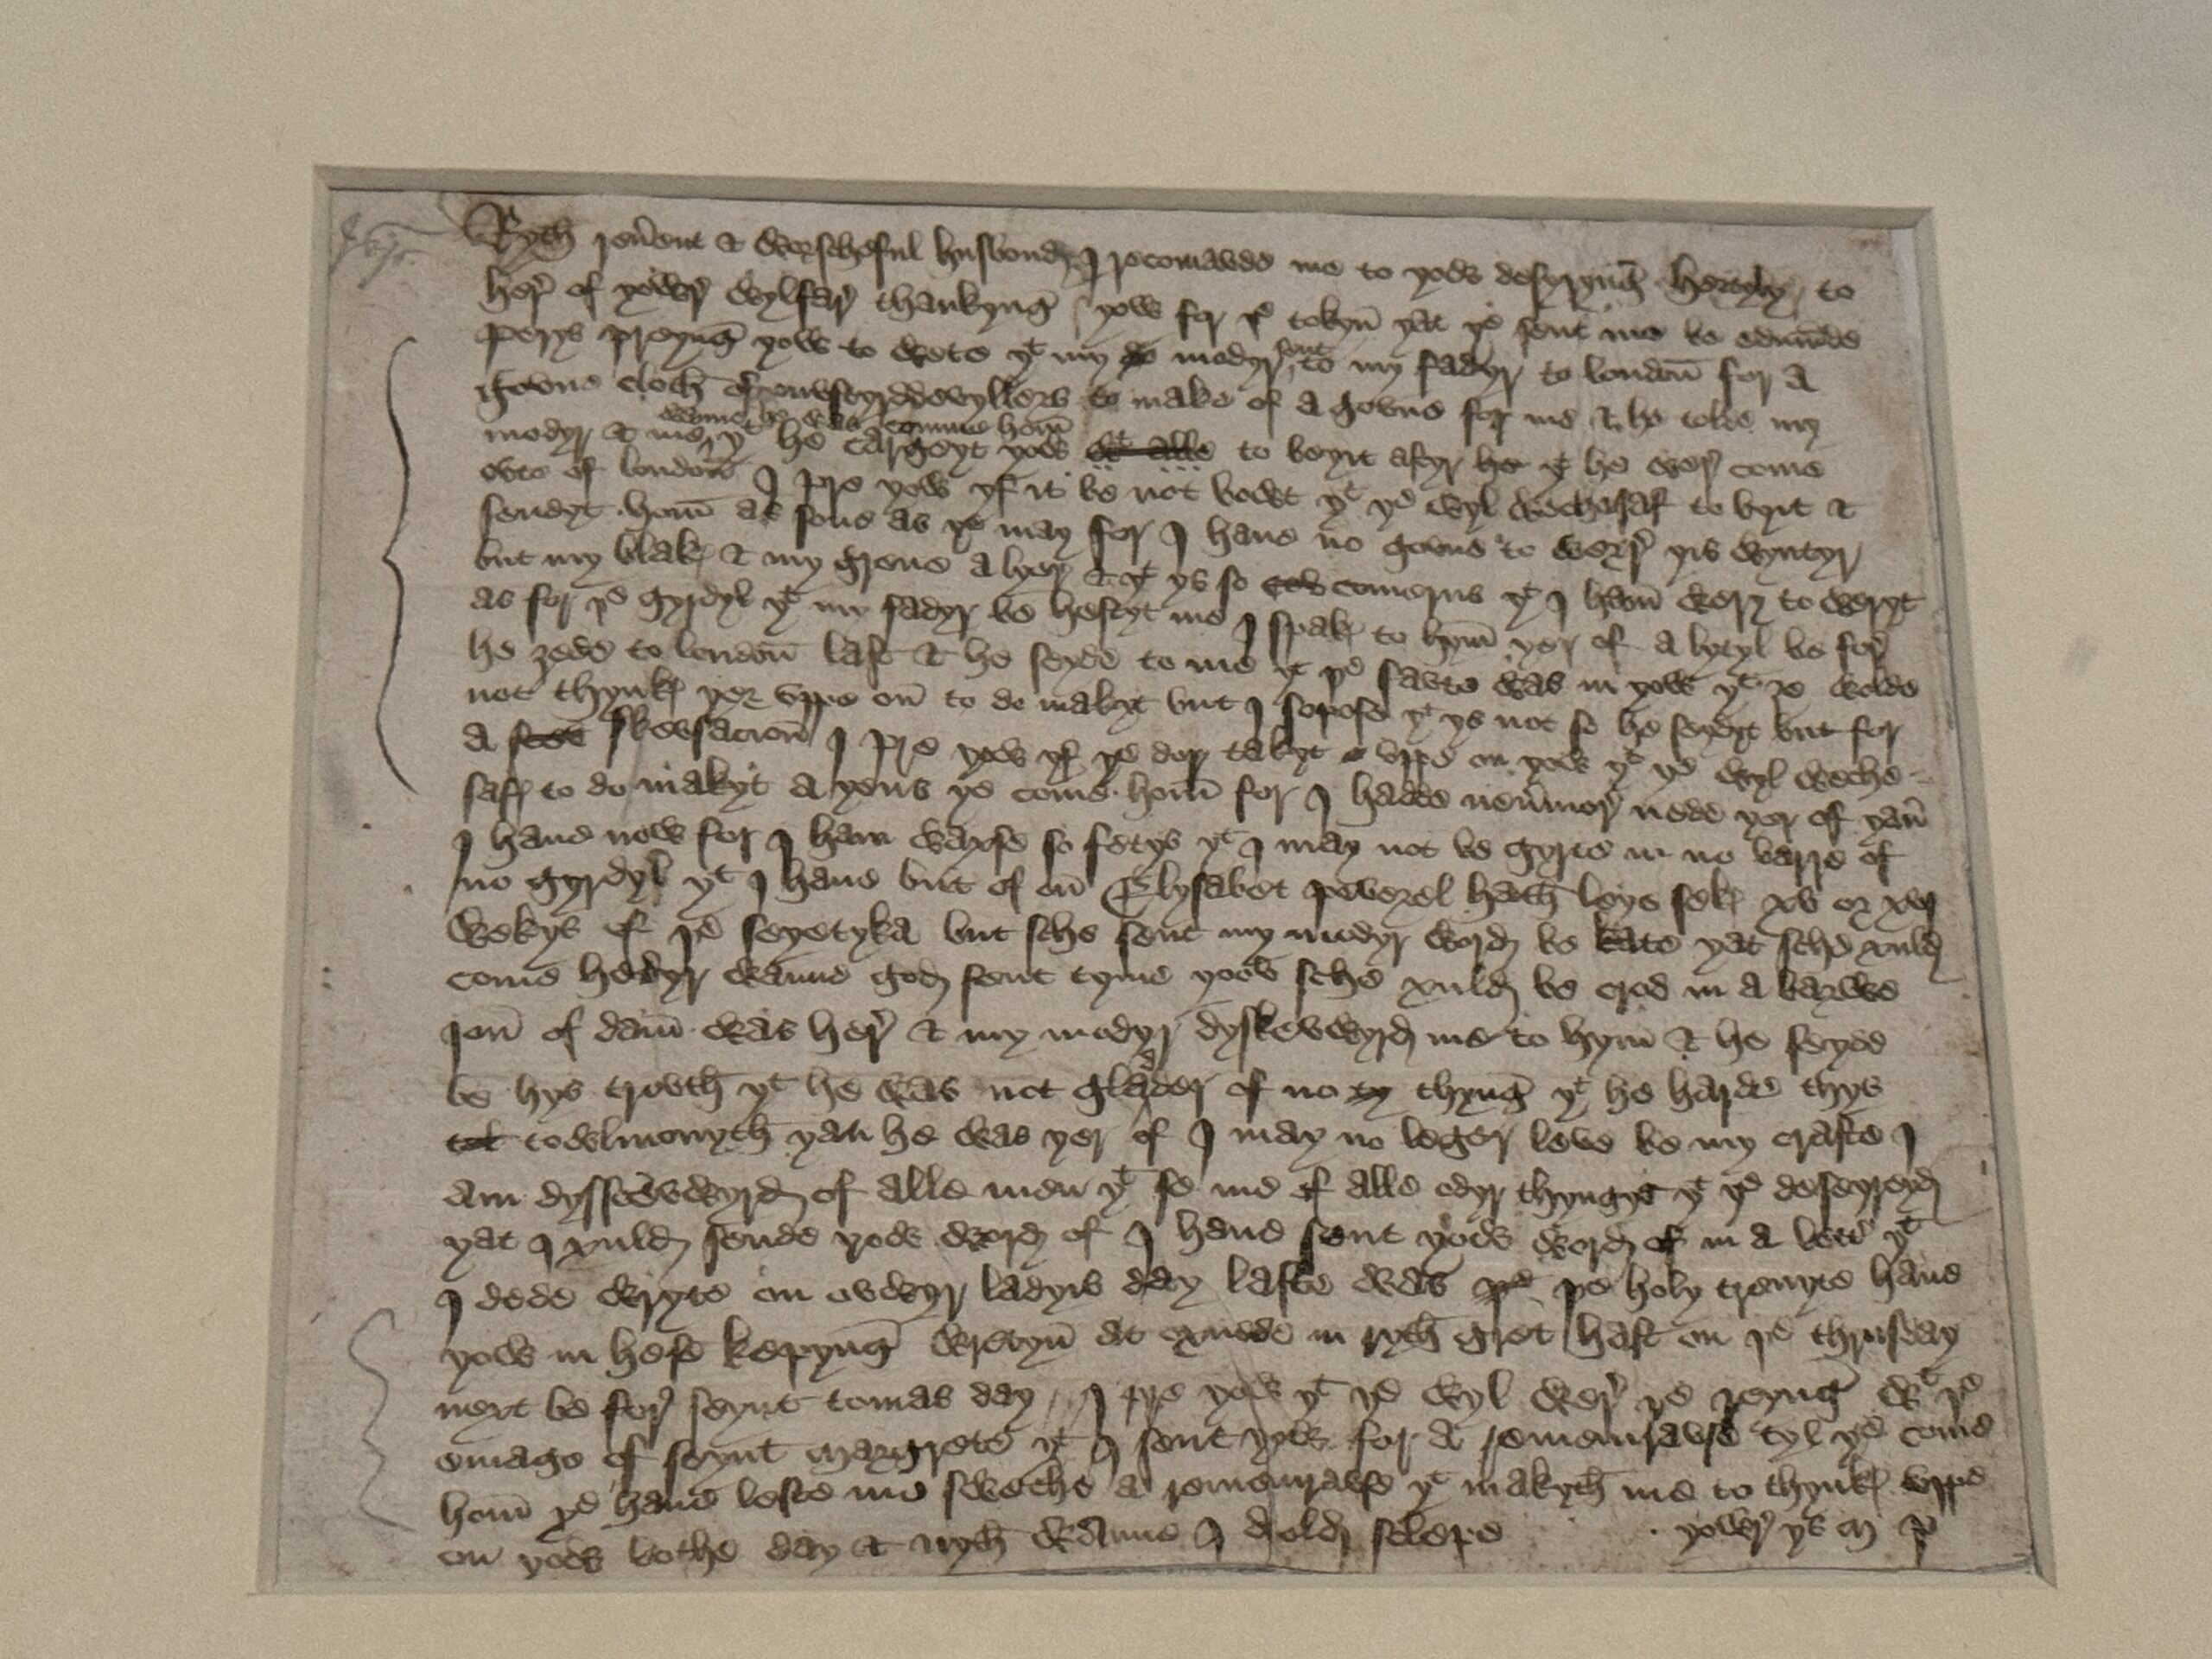 Ryth reu̅ent & worscheful husbond I recomau̅de me to yow desyryng hertyly to
her of yowr wylfar thankyng yow for ye tokyn yat ye sent me be edmu̅de
perys preyng yow to wete yt my modyr sent to my fadyr to london for a
govne cloth of mvstyrddevyllers to make of a govne for me & he tolde my
modyr & me wanne he was comme hom yt he cargeyt yow to beyit aftyr yt he wer come
ovte of london I pre yow yf it be not bowt yt ye wyl wechesaf to byit &
sendyt hom as sone as ye may for I haue no govne to werr yis wyntyr
but my blak & my grene a lyer & yt ys so comerus yt I ham wery to weryt
as for ye gyrdyl yt my fadyr be hestyt me I spak to hym yer of a lytyl be for
he zede to london last & he seyde to me yt ye favte was in yow yt ze wolde
not thynk yer vppe on to do makyt but I sopose yt ys not so he seydyt but for
a skevsacion I pre yow yf ye dor takyt vppe on yow yt ye wyl weche-
safe to do makyt a yens ye come hom for I hadde neu̅mor nede yer of yan
I haue now for I ham waxse so fetys yt I may not be gyrte in no barre of
no gyrdyl yt I haue but of on Elysabet peverel hath leye sek xv or xvj
wekys of ye seyetyka but sche sent my modyr word be kate yat sche xuld
come hedyr wanne god sent tyme yoow sche xuld be crod in a barwe
jon of dam was her & my modyr dyskevwyrd me to hym & he seyde
be hys trovth yt he was not gladder of no thyng yt he harde thys
towlmonyth yan he was yer of I may no leger leve be my crafte I
am dysscevwyrd of alle men yt se me of alle odyr thyngys yt ye deseyreyd
yat I xuld sende yow word of I haue sent yow word of in a letter yt
I dede wryte on ovwyr ladyis day laste was ye holy trenyte haue
yow in hese kepyng wretyn at oxnede in ryth gret hast on ye thrusday
next be for seynt tomas day I pre yow yt ye wyl wer ye reyng wt ye
emage of seynt margrete yt I sent yow for a rememrau̅se tyl ye come
hom ye haue lefte me sweche a rememrau̅se yt makyth me to thynk vppe
on yow bothe day & nyth wanne I wold sclepe yowr ys m p